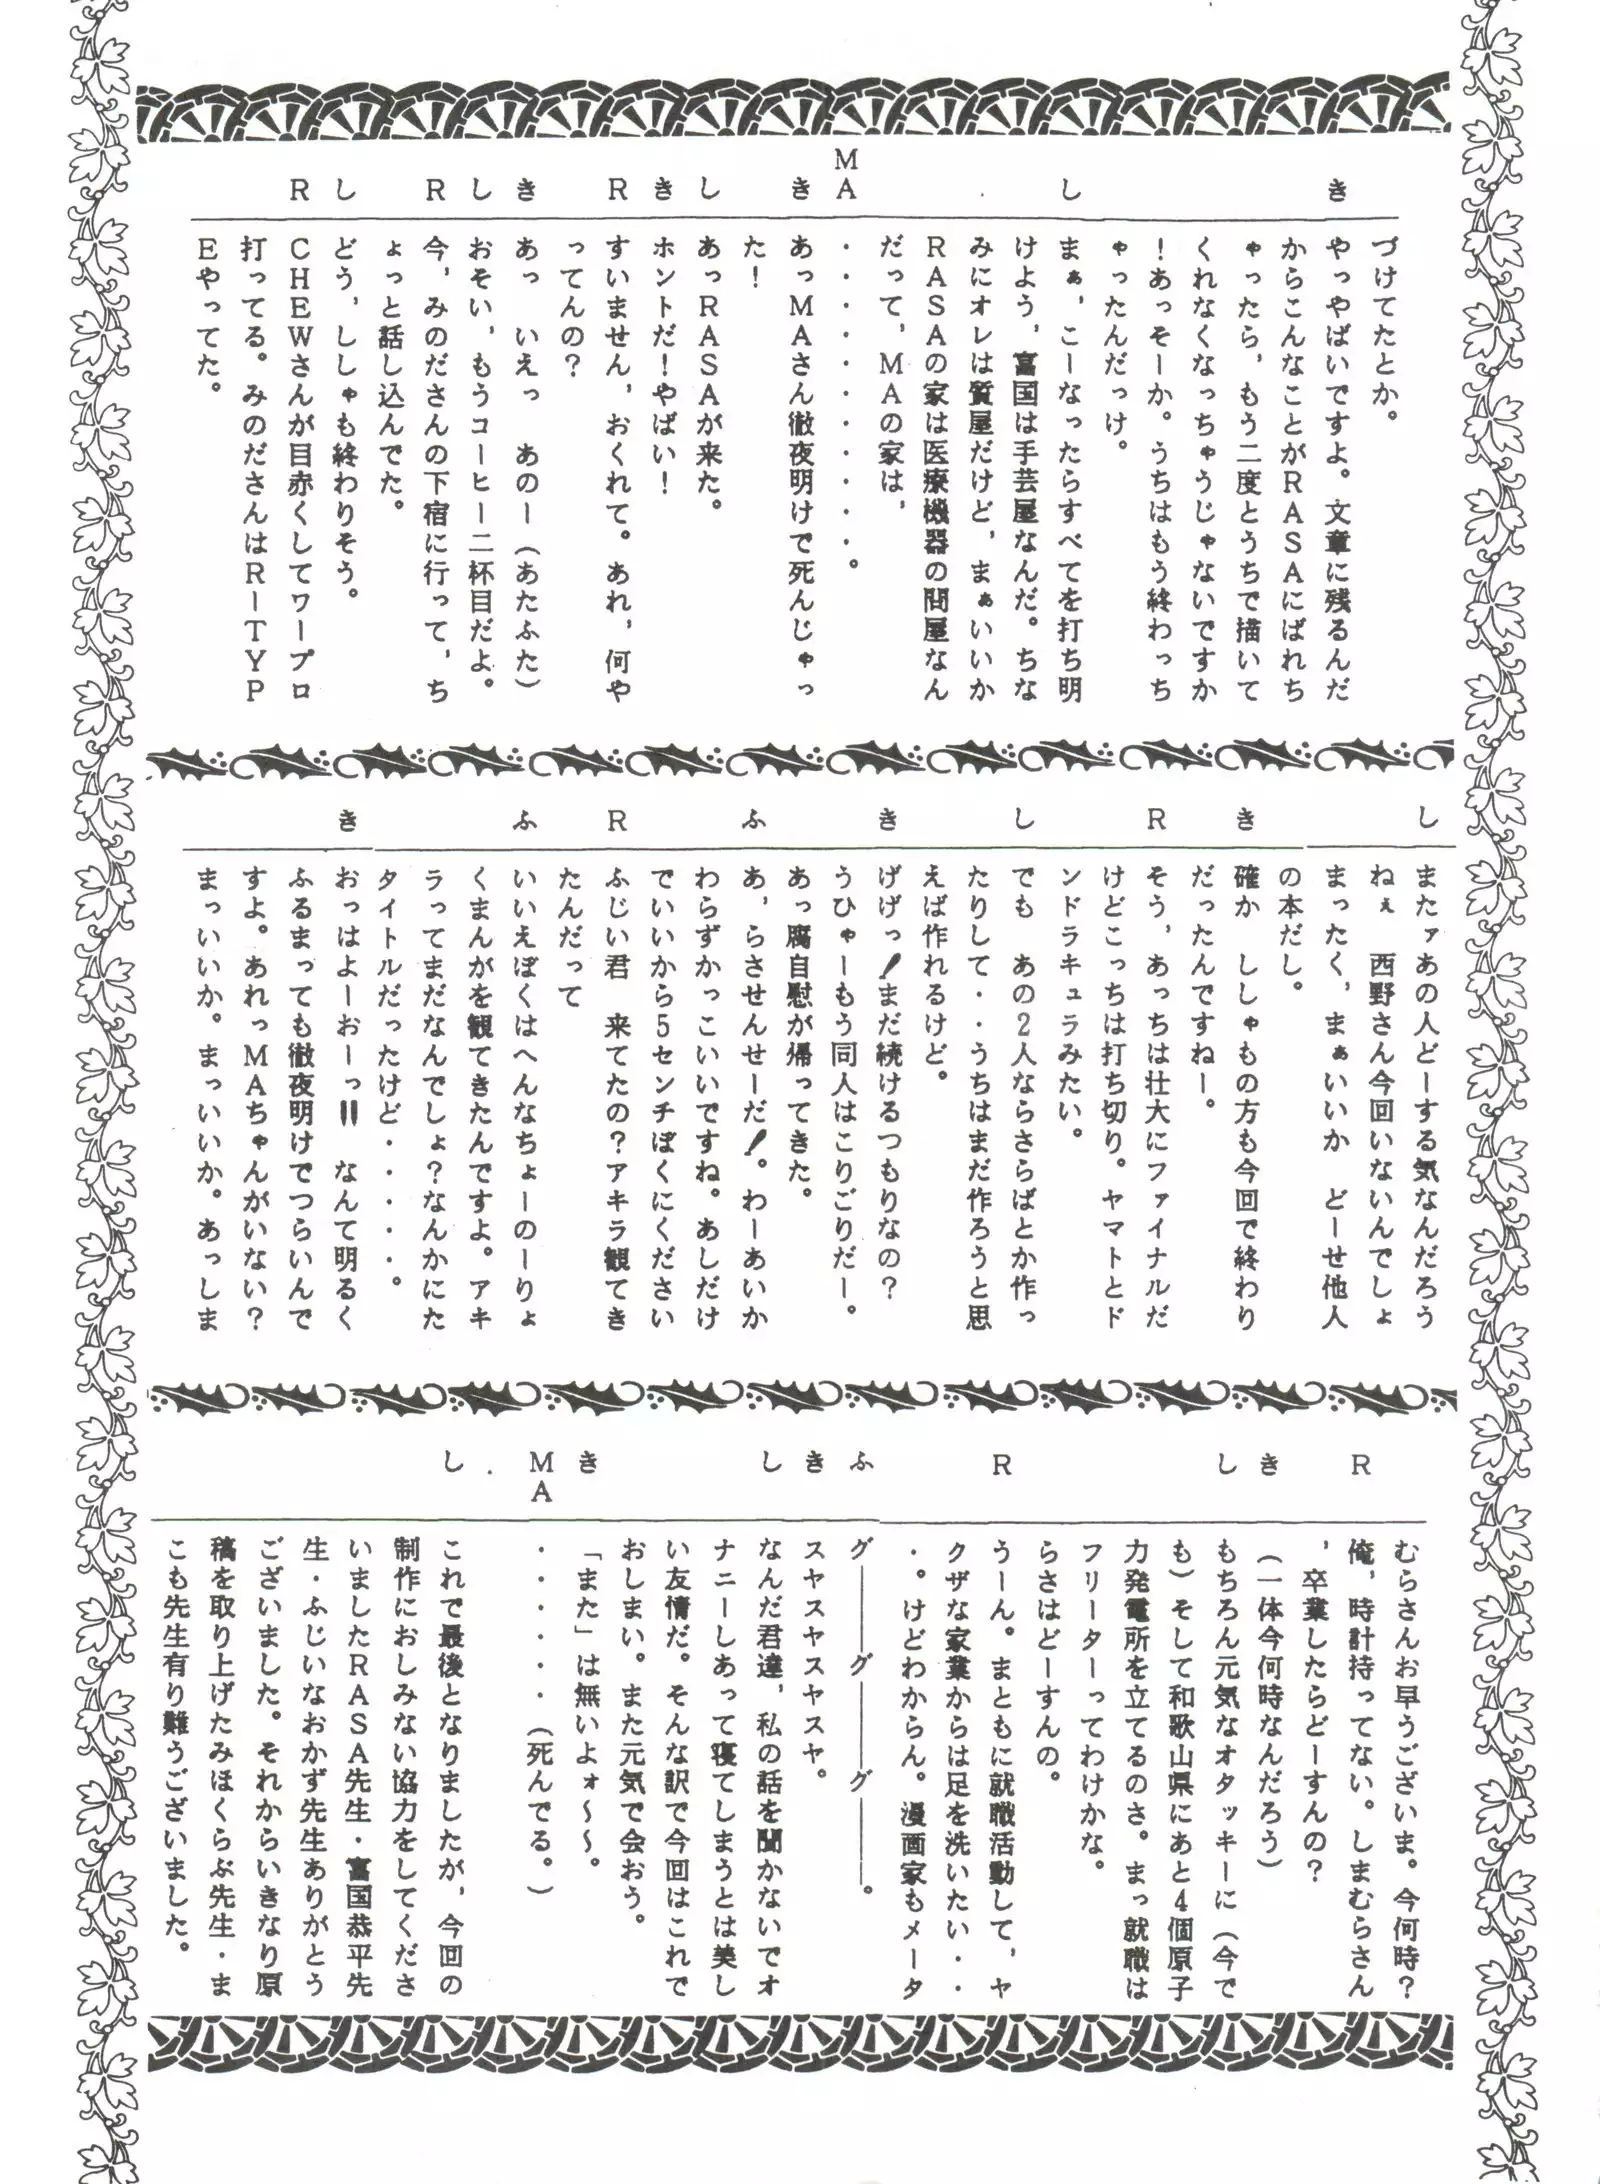 づけてたとか。
き
やっやばいですよ。文章に残るんだ
からこんなことがRASAにばれち
ゃったら,もう二度とうちで描いて
くれなくなっちゃうじゃないですか
!あっそーか。うちはもう終わっち
ゃったんだっけ。
し
まぁ,こーなったらすべてを打ち明
けよう,富国は手芸屋なんだ。ちな
みにオレは質屋だけど,まぁいいか
RASAの家は医療機器の問屋なん
だって,MAの家は,
MA
・・・・・・・・・・・。
き
あっMAさん徹夜明けで死んじゃっ
た!
し
あっRASAが来た。
き
ホントだ!やばい!
R
すいません,おくれて。あれ,何や
ってんの?
き
あっ いえっ あのー(あたふた)
し
おそい,もうコーヒー二杯目だよ。
R
今,みのださんの下宿に行って,ち
ょっと話し込んでた。
し
どう,ししゃも終わりそう。
R
CHEWさんが目赤くしてワープロ
打ってる。みのださんはR-TYP
Eやってた。
し
またァあの人どーする気なんだろう
ねぇ 西野さん今回いないんでしょ
まったく,まぁいいか どーせ他人
の本だし。
き
確か ししゃもの方も今回で終わり
だったんですねー。
R
そう,あっちは壮大にファイナルだ
けどこっちは打ち切り。ヤマトとド
ンドラキュラみたい。
し
でも あの2人ならさらばとか作っ
たりして・・うちはまだ作ろうと思
えば作れるけど。
き
げげっ!まだ続けるつもりなの?
うひゃーもう同人はこりごりだー。
あっ腐自慰が帰ってきた。
ふ
あ,らさせんせーだ!。わーあいか
わらずかっこいいですね。あしだけ
でいいから5センチぼくにください
R
ふじい君 来てたの?アキラ観てき
たんだって
ふ
いいえぼくはへんなちょーのーりょ
くまんがを観てきたんですよ。アキ
ラってまだなんでしょ?なんかにた
タイトルだったけど・・・・・。
き
おっはよーおーっ!! なんて明るく
ふるまっても徹夜明けでつらいんで
すよ。あれっMAちゃんがいない?
まっいいか。まっいいか。あっしま
むらさんお早うございま。今何時?
R
俺,時計持ってない。しまむらさん
,卒業したらどーすんの?
き
(一体今何時なんだろう)
し
もちろん元気なオタッキーに(今で
も)そして和歌山県にあと4個原子
力発電所を立てるのさ。まっ就職は
フリーターってわけかな。
らさはどーすんの。
R
うーん。まともに就職活動して,ヤ
クザな家業からは足を洗いたい・・
・。けどわからん。漫画家もメータ
ふ
グ――グ――グ――。
き
スヤスヤスヤスヤ。
し
なんだ君達,私の話を聞かないでオ
ナニーしあって寝てしまうとは美し
い友情だ。そんな訳で今回はこれで
おしまい。また元気で会おう。
き
「また」は無いよォ～～。
MA
・・・・・・(死んでる。)
し
これで最後となりましたが,今回の
制作におしみない協力をしてくださ
いましたRASA先生・富国恭平先
生・ふじいなおかず先生ありがとう
ございました。それからいきなり原
稿を取り上げたみほくらぶ先生・ま
こも先生有り難うございました。